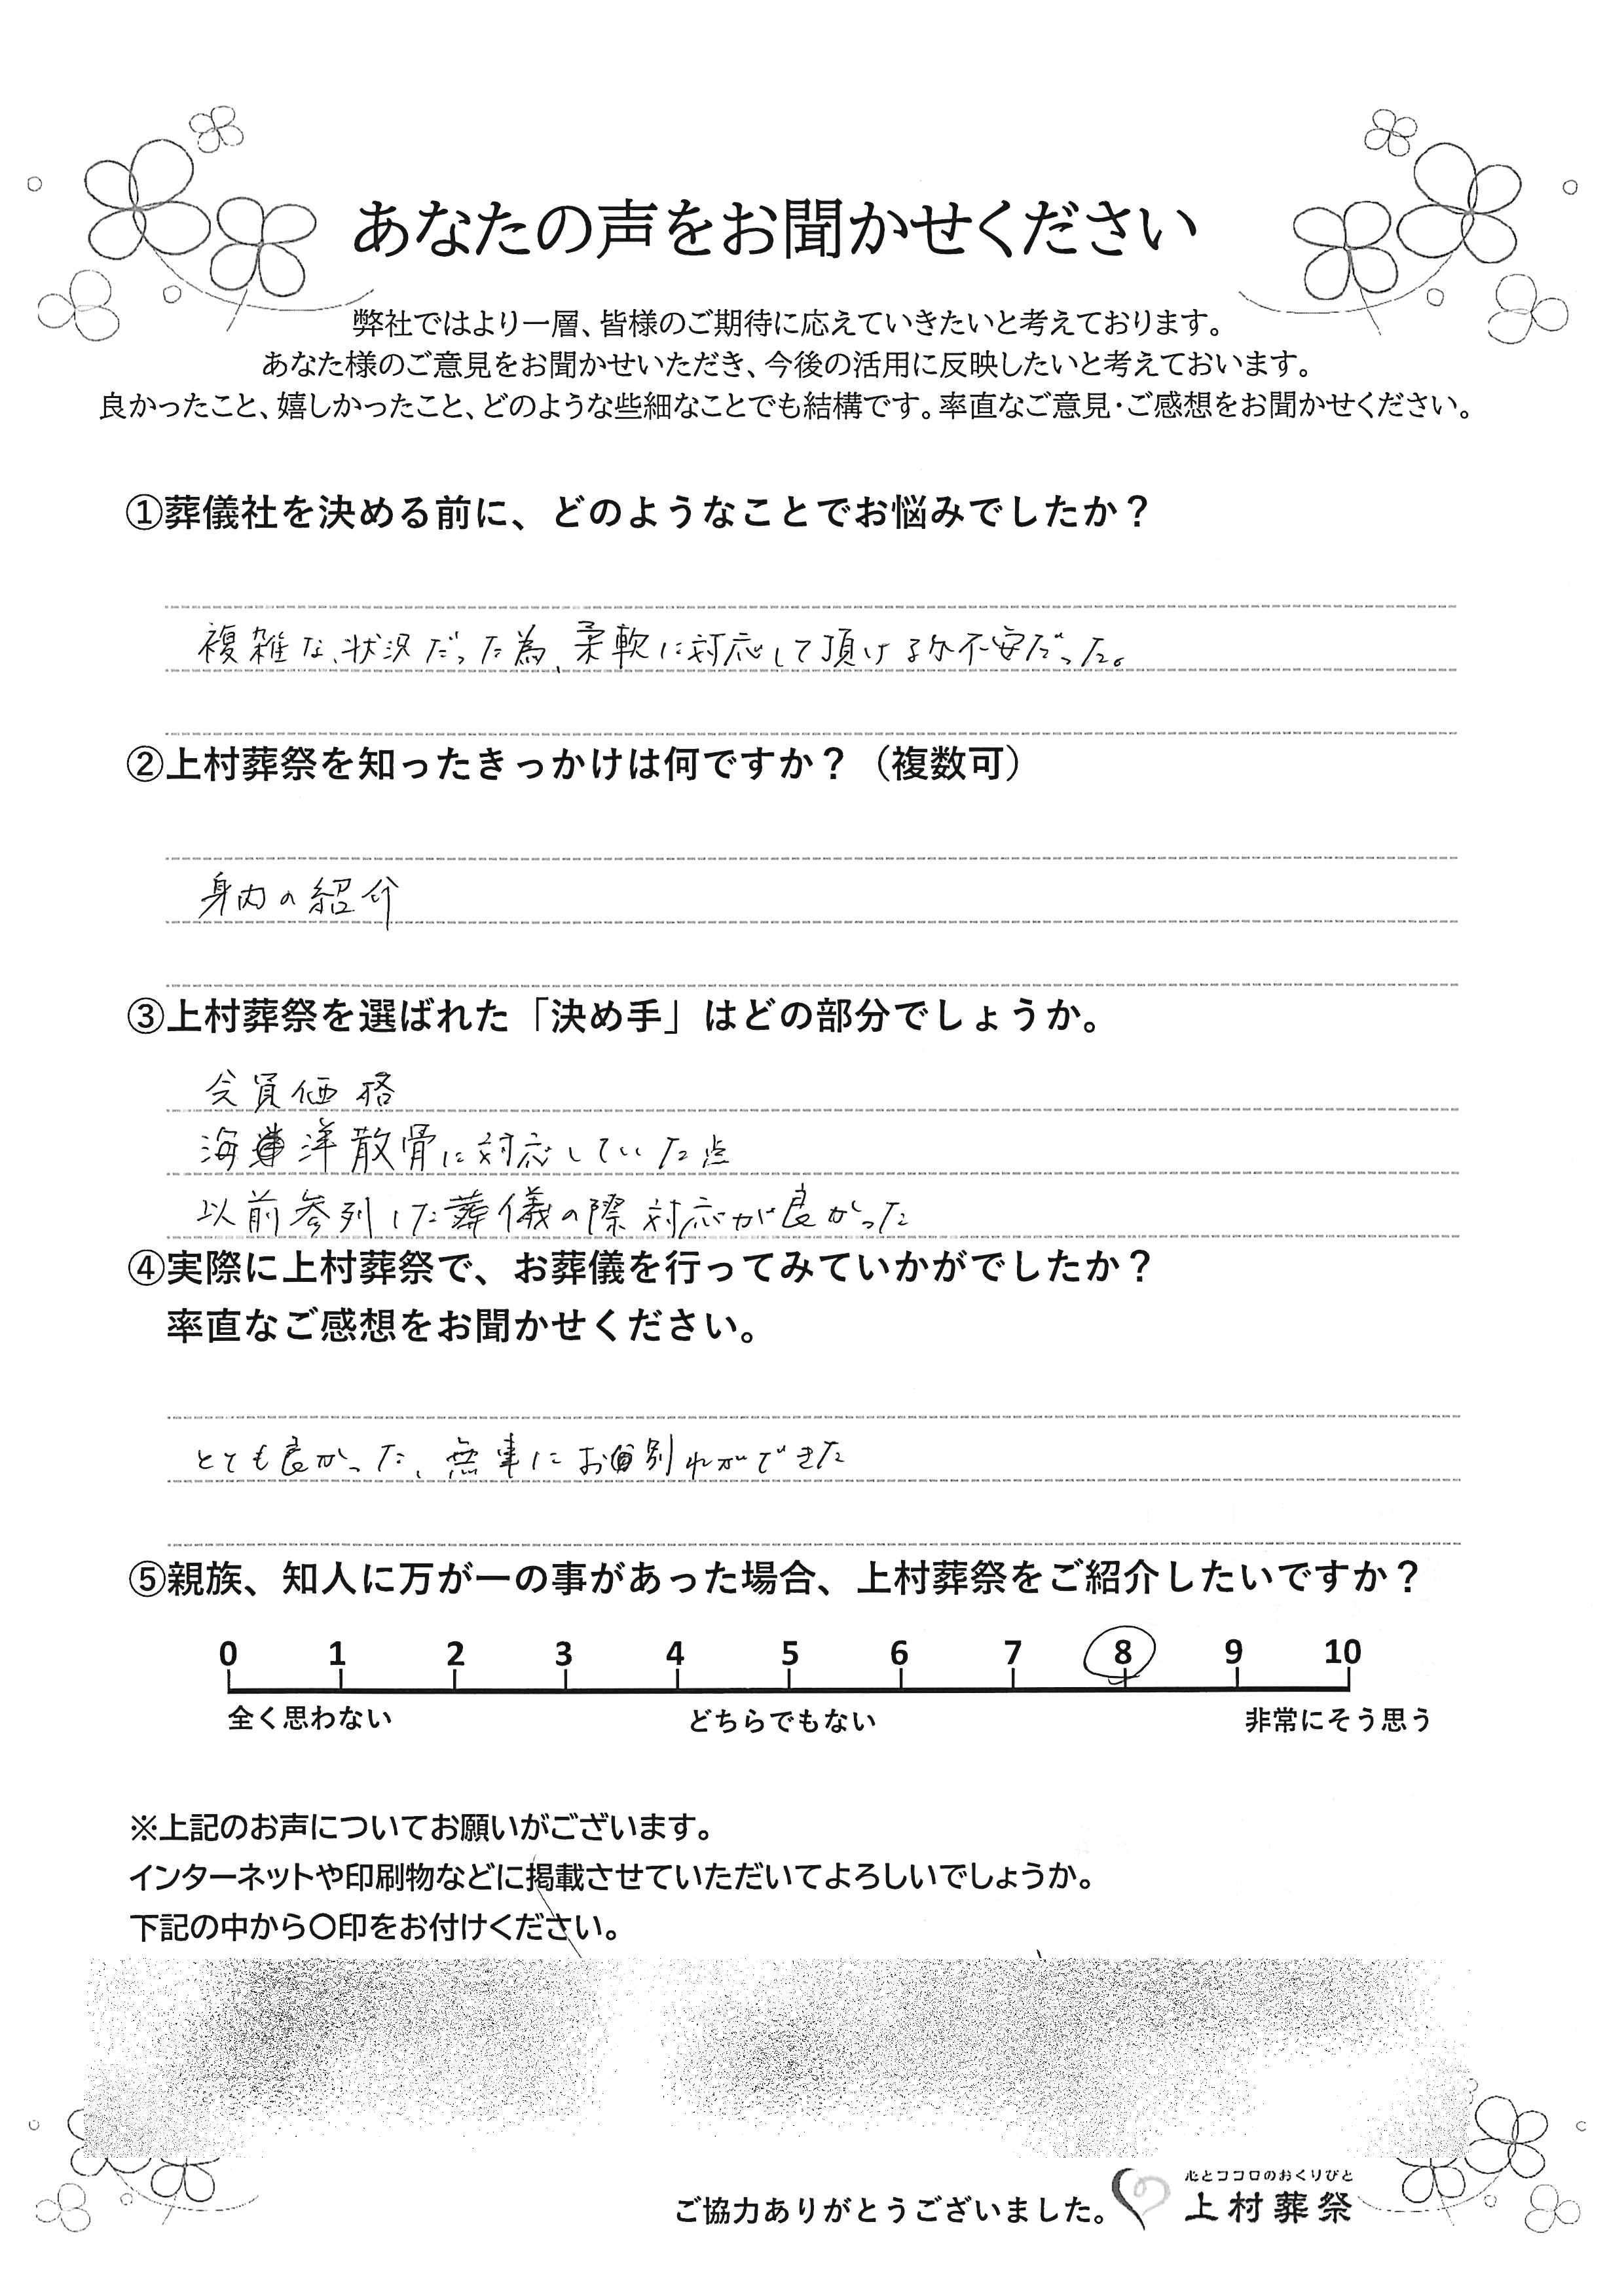 あなたの声をお聞かせください
弊社ではより一層、皆様のご期待に応えていきたいと考えております。
あなた様のご意見をお聞かせいただき、今後の活用に反映したいと考えておいます。
良かったこと、嬉しかったこと、どのような些細なことでも結構です。率直なご意見・ご感想をお聞かせください。
①葬儀社を決める前に、どのようなことでお悩みでしたか？
複雑な状況だった為、柔軟に対応して頂けるか不安だった。
②上村葬祭を知ったきっかけは何ですか？（複数可）
身内の紹介
③上村葬祭を選ばれた「決め手」はどの部分でしょうか。
会員価格
海洋散骨に対応していた点
以前参列した葬儀の際対応が良かった
④実際に上村葬祭で、お葬儀を行ってみていかがでしたか？
率直なご感想をお聞かせください。
とても良かった、無事にお別れができた
⑤親族、知人に万が一の事があった場合、上村葬祭をご紹介したいですか？
0 1 2 3 4 5 6 7 8 9 10
全く思わない どちらでもない 非常にそう思う
※上記のお声についてお願いがございます。
インターネットや印刷物などに掲載させていただいてよろしいでしょうか。
下記の中から〇印をお付けください。
心とココロのおくりびと
ご協力ありがとうございました。 上村葬祭